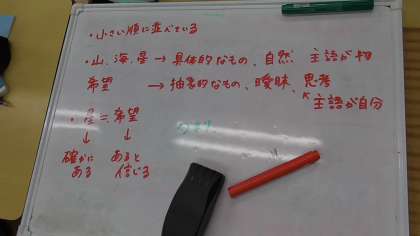 ・小さい順に並べている
・山、海、星 → 具体的なもの、自然、主語が物
希望 → 抽象的なもの、曖昧、思考
主語が自分
・星 = 希望
↓ ↓
確かに あると
ある 信じる